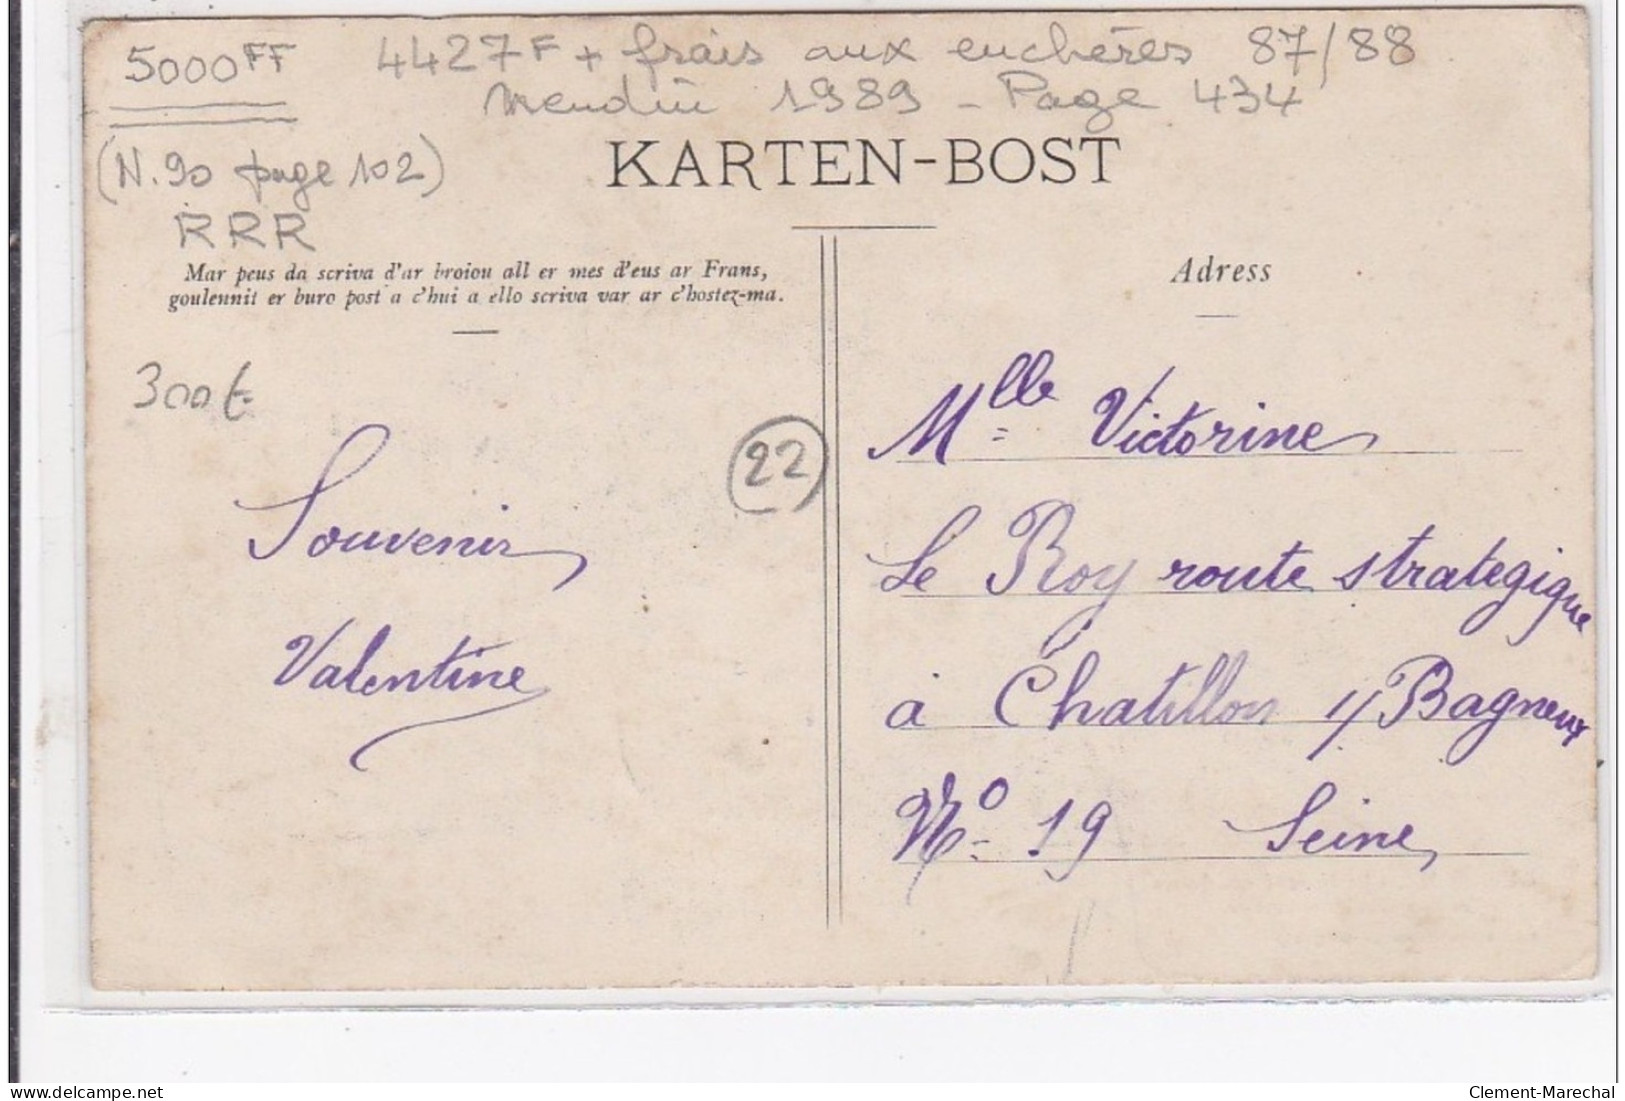 5000FF
4427F + frais aux enchères 87/88
1989 - Page 434
(N. 90 page 102)
RRR
KARTEN-BOST
Mar peus da scriva d'ar broiou all er mes d'eus ar Frans,
goulennit er buro post a c'hui a ello scriva var ar c'hostez-ma.
300€
22
Souvenir
Valentine
Adress
Mlle Victorine
Le Roy route strategique
à Chatillon s/ Bagneux
No 19 Seine
delcampe.net
Clement-Marechal